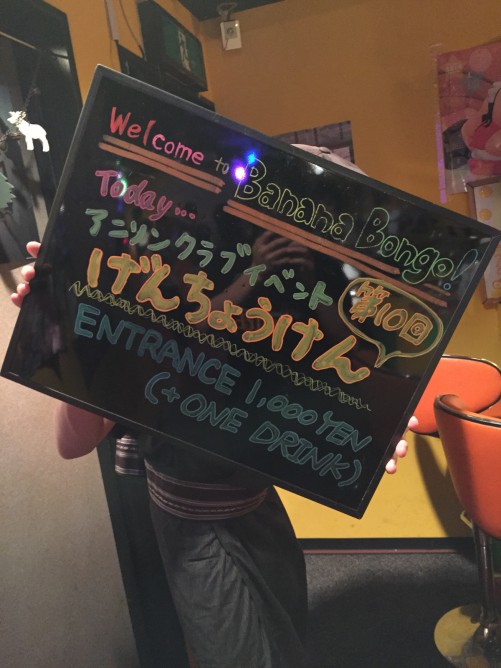 Welcome to Banana Bongo!
Today...
アニソンクラブイベント
げんちょうけん
第10回
ENTRANCE 1,000 YEN
(+ ONE DRINK)